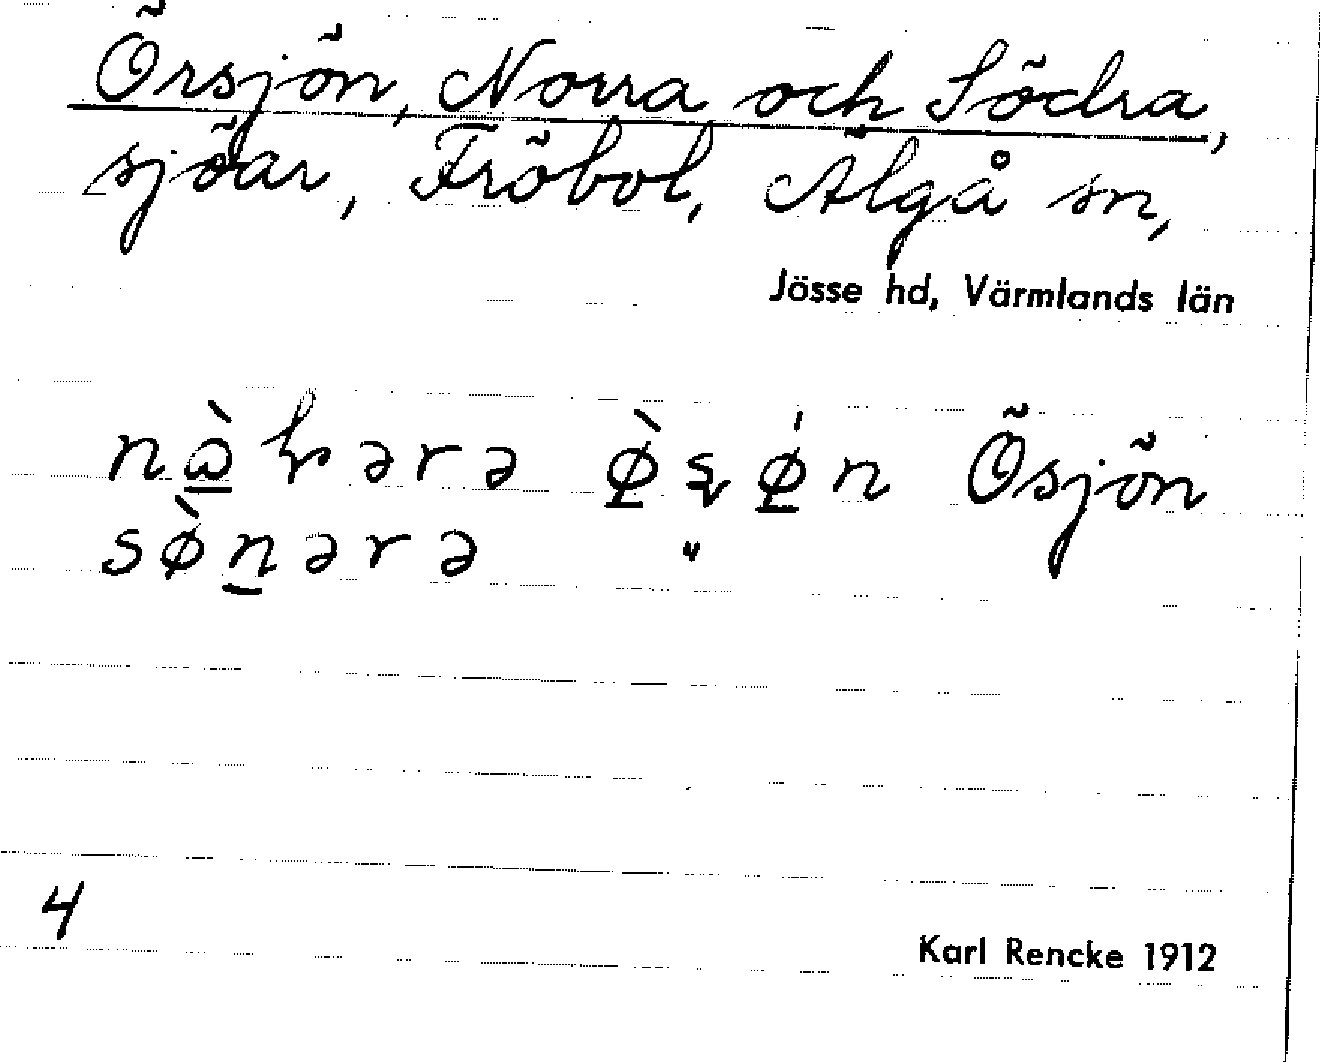 Örsjön, Norra och Södra,
sjöar, Fröbol, Älgå sn,
Jösse hd, Värmlands län
ərə ø̠̀ ǿ̠n Ösjön
sø̀n̠ərə "
4
Karl Rencke 1912